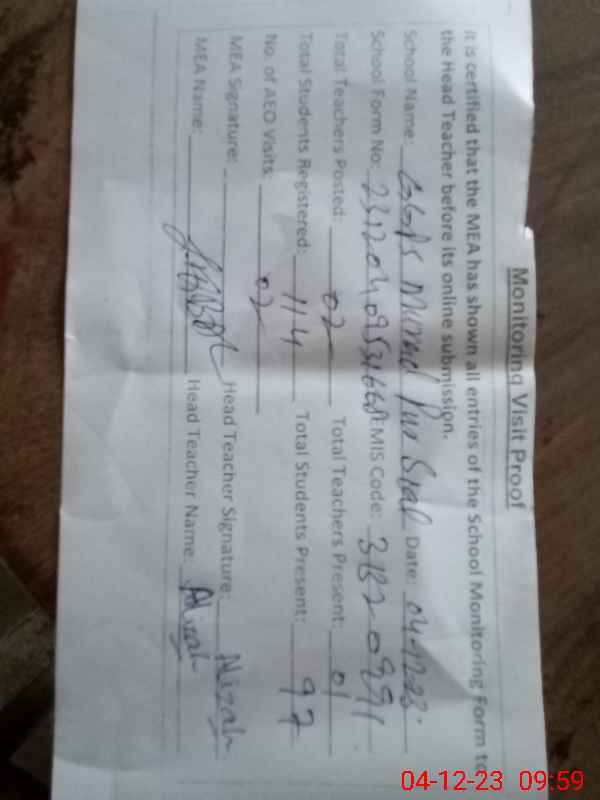 Monitoring Visit Proof
It is certified that the MEA has shown all entries of the School Monitoring Form to
the Head Teacher before its online submission.
School Name: GGPS Murad Pur Sial Date: 04-12-23
School Form No: EMIS Code: 31820991
Total Teachers Posted: 02 Total Teachers Present: 01
Total Students Registered: 114 Total Students Present: 97
No. of AEO Visits: 02
MEA Signature: Head Teacher Signature:
MEA Name: Head Teacher Name:
04-12-23 09:59